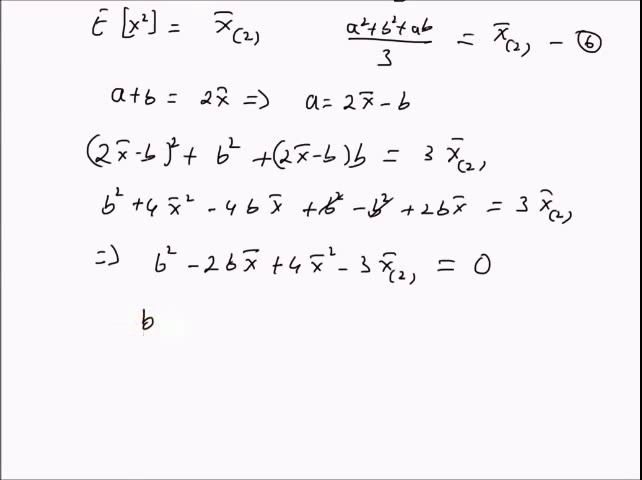 E[x²] = x̄₍₂₎   (a²+b²+ab)/3 = x̄₍₂₎ - ⑥
a+b = 2x̄ => a = 2x̄ - b
(2x̄-b)² + b² + (2x̄-b)b = 3 x̄₍₂₎
b² + 4x̄² - 4bx̄ + b² - b² + 2bx̄ = 3 x̄₍₂₎
=> b² - 2bx̄ + 4x̄² - 3x̄₍₂₎ = 0
b